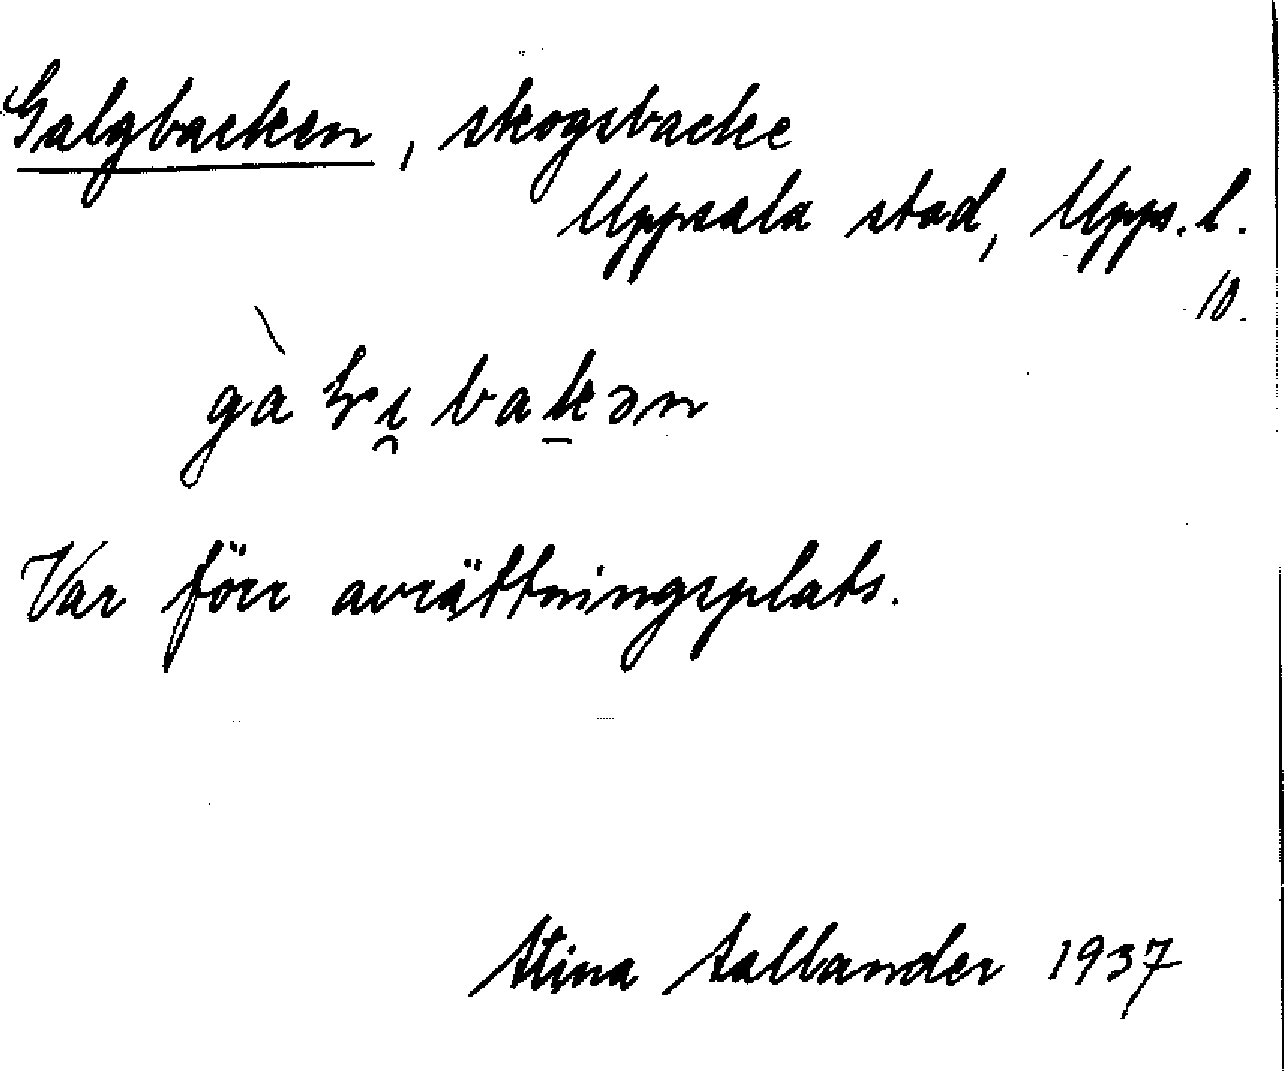 Galgbacken, skogsbacke
Uppsala stad, Upps. l.
10.
Var förr avrättningsplats.
Stina Sallander 1937